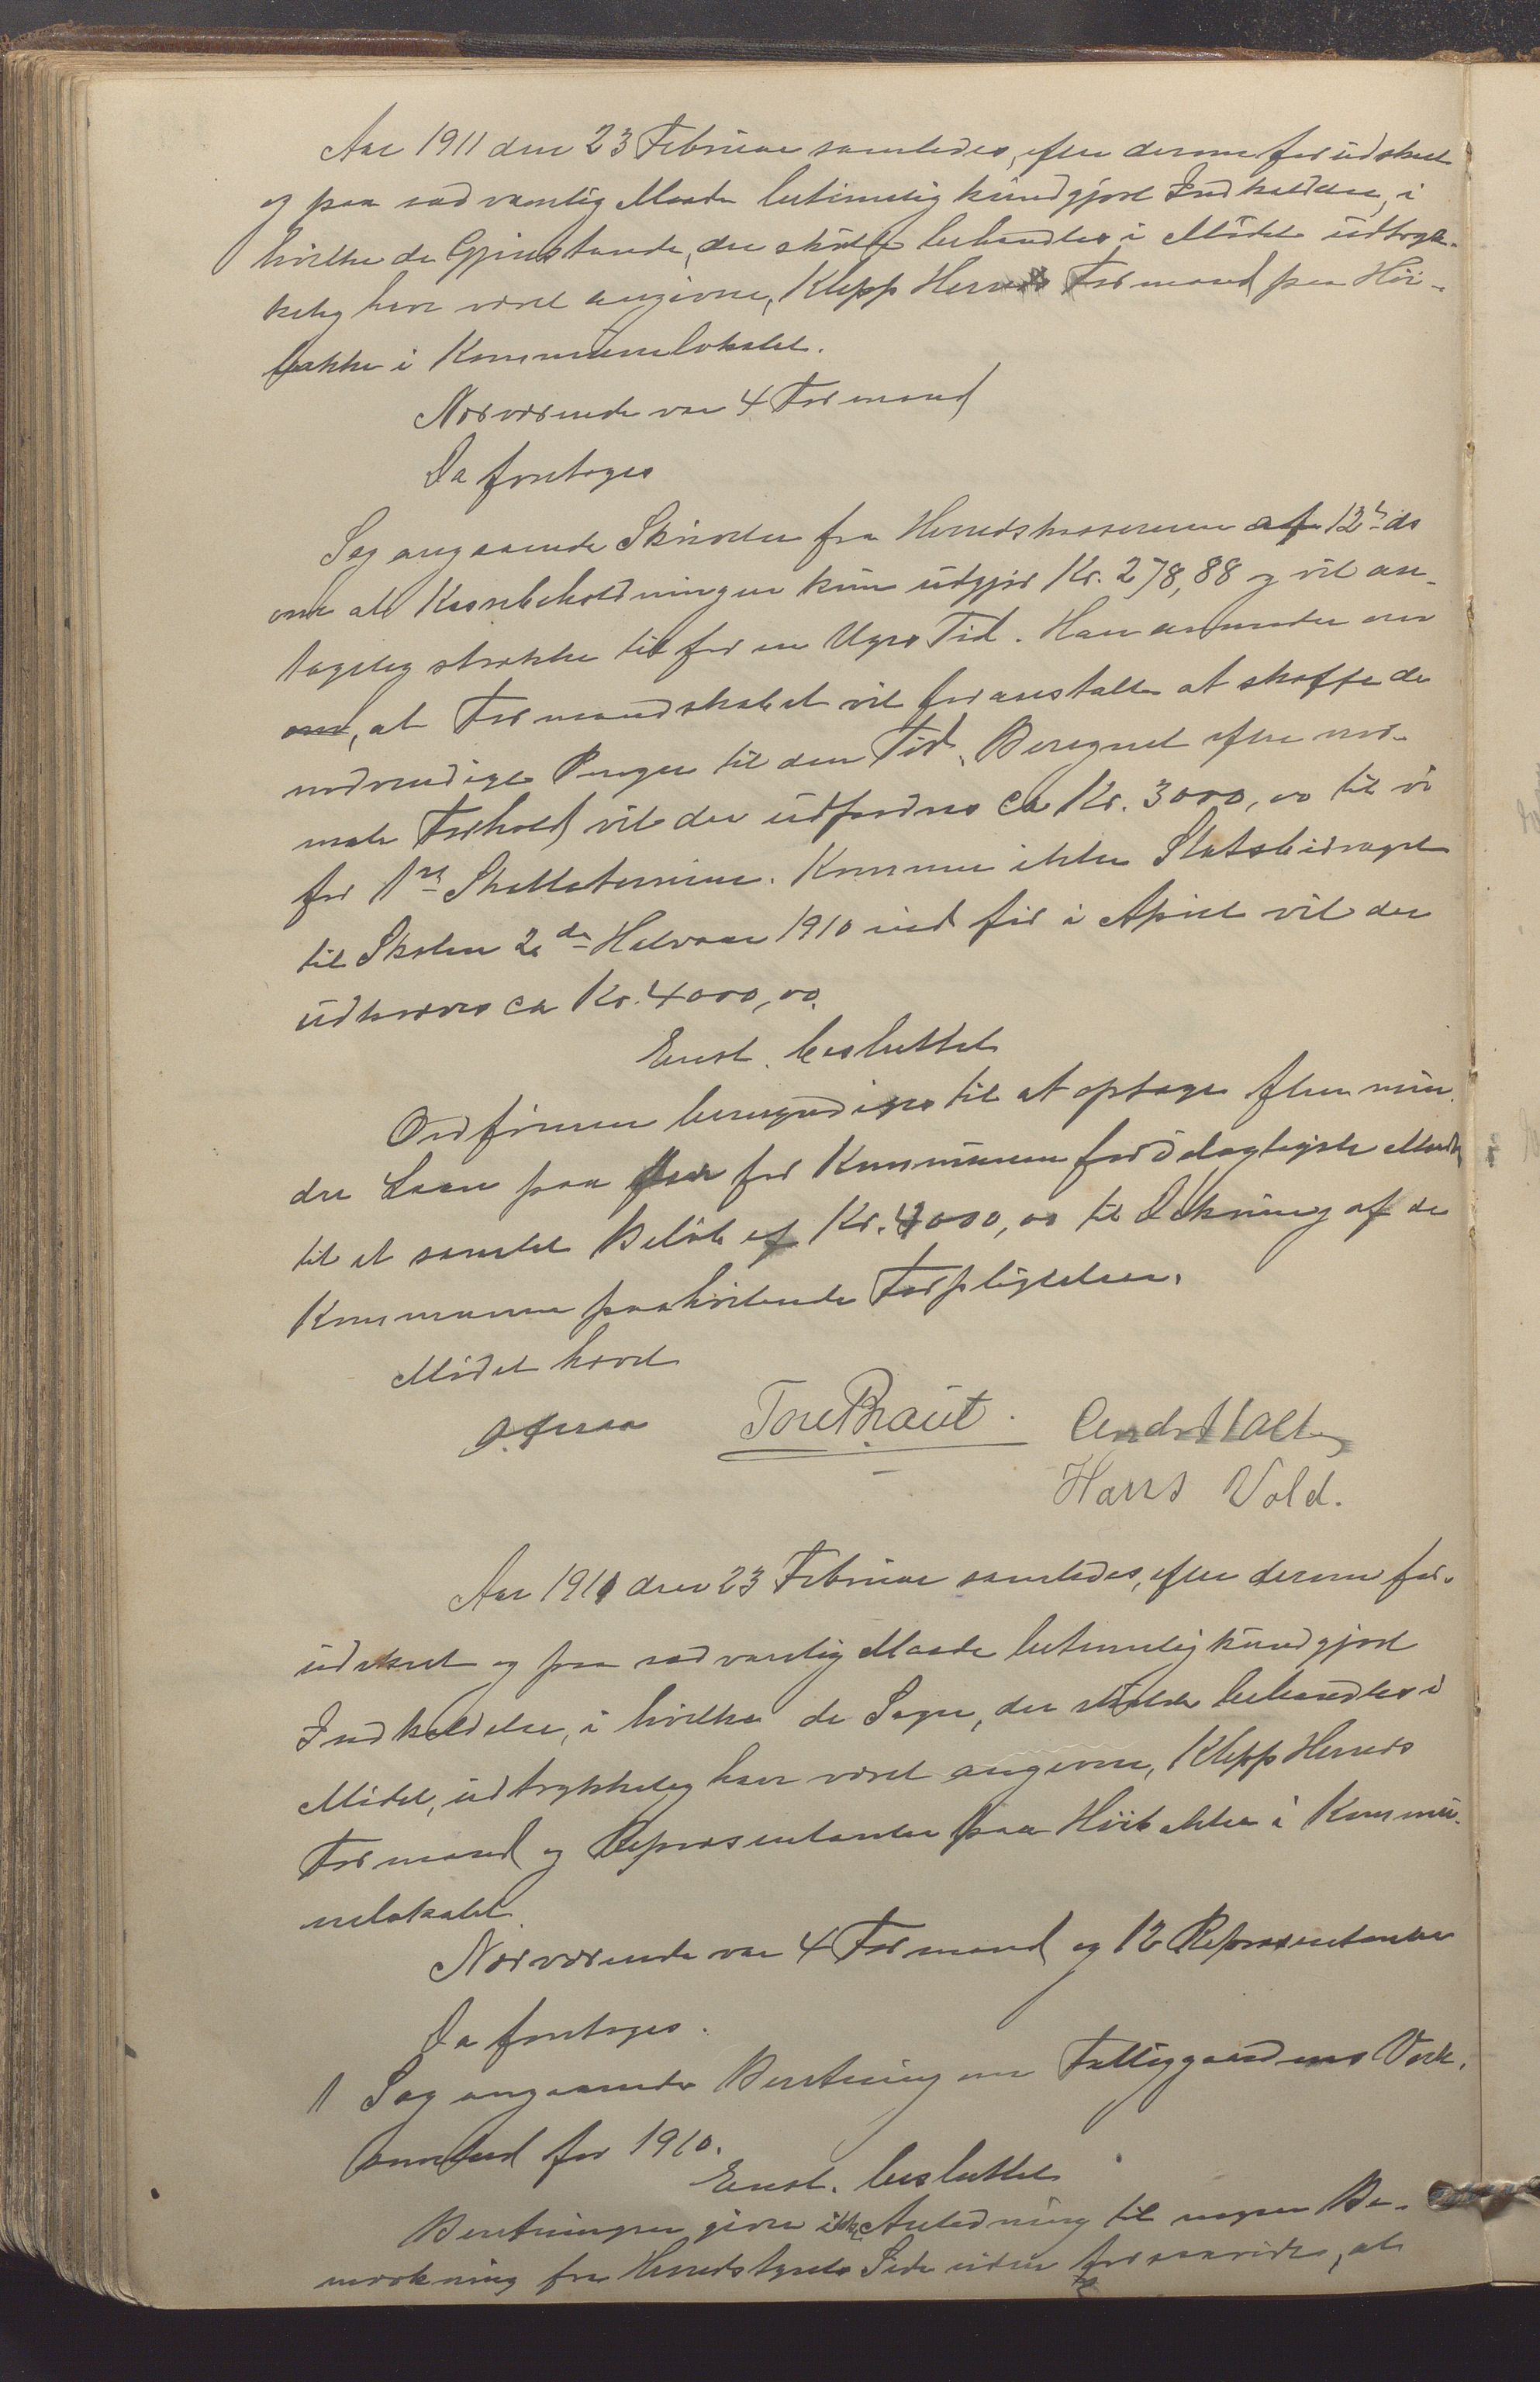 Aar 1911 den 23 Februar samledes, efter derom forudskeet
og paa sædvanlig Maade betimelig kundgjort Indkaldelse, i
hvilke de Gjenstande, der skulde behandles i Mødet udtryk-
kelig have været angivne, Klepp Herreds Formænd paa Høi-
bakke i Kommunelokalet.
Nærværende var 4 Formænd
Da foretoges
Sag angaaende Skrivelse fra Herredskassereren af 12te ds
om at Kassebeholdningen kun udgjør Kr. 278,88 og vil an-
tagelig strække til for en Uges Tid. Han anmoder om
om, at Formandskabet vil foranstalte at skaffe de
nødvendige Penge til den Tid. Beregnet efter nor-
male Forhold vil der udfordres ca Kr. 3000,00 til vi
for 1ste Skattetermin. Kommer ikke Statsbidraget
til Skolen 2det Halvaar 1910 ind før i April vil der
udkræves ca Kr. 4000,00.
Enst. besluttet
Ordføreren bemyndiges til at optage flere min-
dre Laan paa for Kommunen fordelagtigste Maade
til et samlet Beløb af Kr. 4000,00 til Dekning af de
Kommunen paahvilende Forpligtelser.
Mødet hævet
Tore Braut. Andr
Hans Vold.
Aar 1911 den 23 Februar samledes, efter derom for-
udskeet og paa sædvanlig Maade betimelig kundgjort
Indkaldelse, i hvilke de Sager, der skulde behandles i
Mødet, udtrykkelig have været angivne, Klepp Herreds
Formænd og Repræsentanter paa Høibakke i Kommu-
nelokalet.
Nærværende var 4 Formænd og 12 Repræsentanter
Da foretoges.
1 Sag angaaende Beretning om Fattiggaardens Virk-
somhed for 1910.
Enst. besluttet
Beretningen giver ikke Anledning til nogen Be-
mærkning fra Herredstyrets Side uden forsaavidt, at